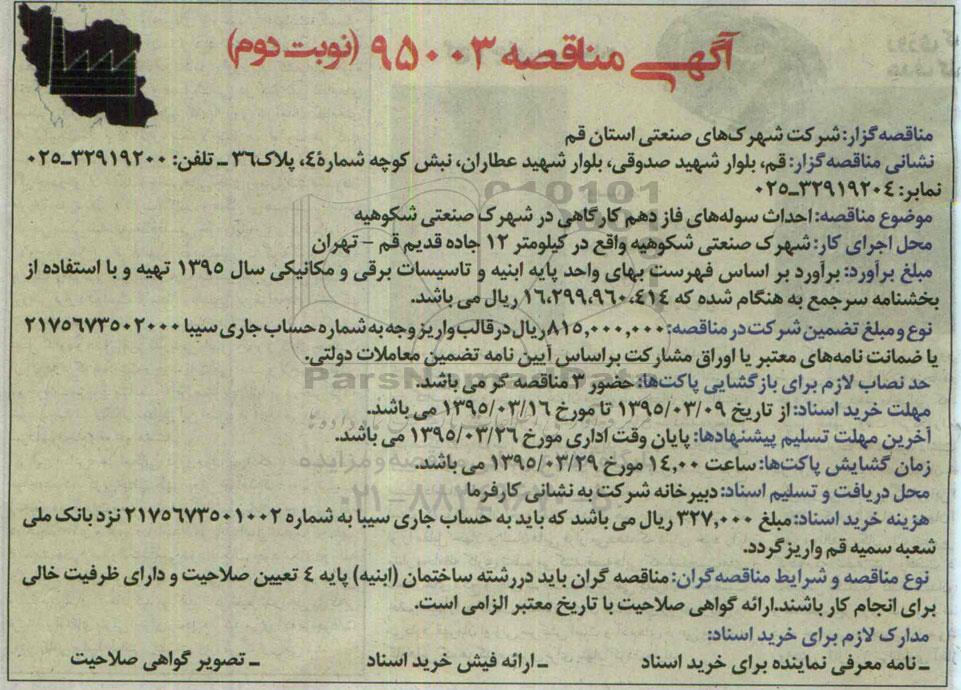 آگهی مناقصه ۹۵۰۰۳ (نوبت دوم)
مناقصه گزار: شرکت شهرک‌های صنعتی استان قم
نشانی مناقصه گزار: قم، بلوار شهید صدوقی، بلوار شهید عطاران، نبش کوچه شمارهٔ ۴، پلاک ۳۶ ـ تلفن: ۳۲۹۱۹۲۰۰ـ۰۲۵
نمابر: ۳۲۹۱۹۲۰۴ـ۰۲۵
موضوع مناقصه: احداث سوله‌های فاز دهم کارگاهی در شهرک صنعتی شکوهیه
محل اجرای کار: شهرک صنعتی شکوهیه واقع در کیلومتر ۱۲ جاده قدیم قم - تهران
مبلغ برآورد: برآورد بر اساس فهرست بهای واحد پایه ابنیه و تاسیسات برقی و مکانیکی سال ۱۳۹۵ تهیه و با استفاده از
بخشنامه سرجمع به هنگام شده که ۱۶،۲۹۹،۹۶۰،۴۱۴ ریال می باشد.
نوع و مبلغ تضمین شرکت در مناقصه: ۸۱۵,۰۰۰,۰۰۰ ریال در قالب واریز وجه به شماره حساب جاری سیبا ۲۱۷۵۶۷۳۵۰۲۰۰۰
یا ضمانت نامه‌های معتبر یا اوراق مشارکت بر اساس آیین نامه تضمین معاملات دولتی.
حد نصاب لازم برای بازگشایی پاکت‌ها: حضور ۳ مناقصه گر می باشد.
مهلت خرید اسناد: از تاریخ ۱۳۹۵/۰۳/۰۹ تا مورخ ۱۳۹۵/۰۳/۱۶ می باشد.
آخرین مهلت تسلیم پیشنهادها: پایان وقت اداری مورخ ۱۳۹۵/۰۳/۲۶ می باشد.
زمان گشایش پاکت‌ها: ساعت ۱۴,۰۰ مورخ ۱۳۹۵/۰۳/۲۹ می باشد.
محل دریافت و تسلیم اسناد: دبیرخانه شرکت به نشانی کارفرما
هزینه خرید اسناد: مبلغ ۳۲۷,۰۰۰ ریال می باشد که باید به حساب جاری سیبا به شماره ۲۱۷۵۶۷۳۵۰۱۰۰۲ نزد بانک ملی
شعبه سمیه قم واریز گردد.
نوع مناقصه و شرایط مناقصه گران: مناقصه گران باید در رشته ساختمان (ابنیه) پایه ۴ تعیین صلاحیت و دارای ظرفیت خالی
برای انجام کار باشند. ارائه گواهی صلاحیت با تاریخ معتبر الزامی است.
مدارک لازم برای خرید اسناد:
ـ نامه معرفی نماینده برای خرید اسناد ـ ارائه فیش خرید اسناد ـ تصویر گواهی صلاحیت
ParsNamadData